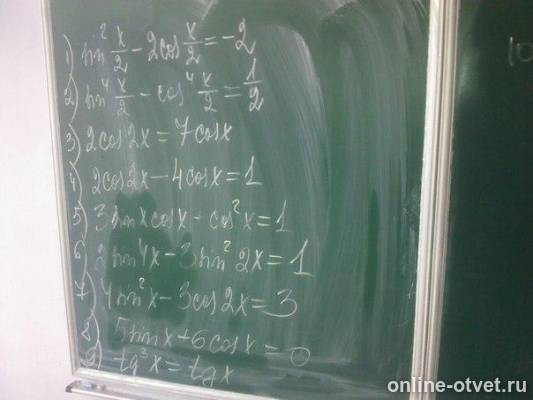 1) sin² x/2 - 2cos x/2 = -2
2) sin⁴ x/2 - cos⁴ x/2 = 1/2
3) 2cos2x = 7cosx
4) 2cos2x - 4cosx = 1
5) 3sinxcosx - cos²x = 1
6) 2sin4x - 3sin²2x = 1
7) 4sin²x - 3cos2x = 3
8) 5sinx + 6cosx = 0
9) tg³x = tgx
10
online-otvet.ru